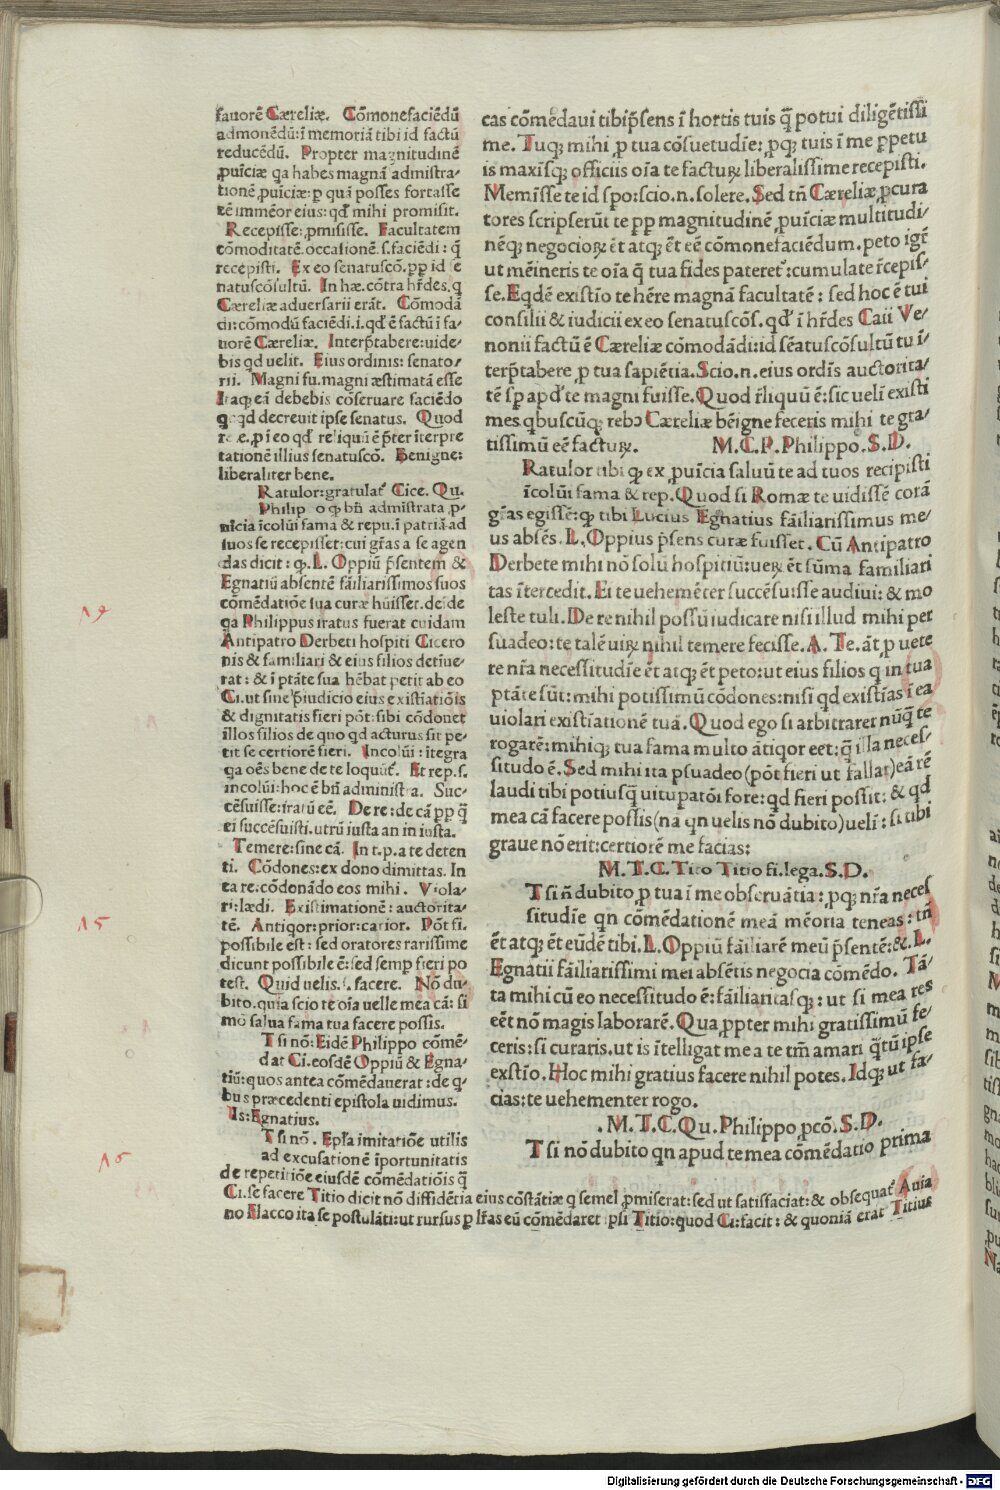 fauorē Cæreliæ. Cōmonefaciēdū
admonēdū: ī memoriā tibi id factū
reducēdū. Propter magnitudinē
ꝓuīciæ qa habes magnā admistra/
tionē ꝓuīciæ: p quā posses fortasse
eē immēor eius: qd' mihi promisit.
Recepisse: ꝓmisisse. Facultatem
cōmoditatē. occasionē. s. faciēdi: q̄
recepisti. Ex eo senatuscō. pp id e
natuscōsultū. In hæ. cōtra hr̄des. q
Cæreliæ aduersarii erāt. Cōmodā
di: cōmodū faciēdi. i. qd' ē factū ī fa/
uorē Cæreliæ. Interp̄tabere: uide/
bis qd uelit. Eius ordinis: senato/
rii. Magni fu. magni æstimatā esse
Itaqꝫ eā debebis cōseruare faciēdo
qꝫ qd decreuit ipse senatus. Quod
re. e. p i eo qd' reliquū ē p̄ter īterpre
tationē illius senatuscō. Benigne:
liberaliter bene.
Ratulor: gratulat' Cice. Qu.
Philip o qꝫ bn̄ admīstrata ꝓ/
uīcia īcolūi fama & repu. ī patriā ad
suos se recepisset: cui gr̄as a se agen
das dicit: qꝫ. L. Oppiū p̄sentem &
Egnatiū absentē fāiliarissimos suos
cōmēdatiōe sua curæ hūisset. deīde
qa Philippus iratus fuerat cuidam
Antipatro Derbeti hospiti Cicero
nis & familiari & eius filios detīue/
rat: & ī p̄tāte sua hēbat petit ab eo
Ci. ut sine p̄iudicio eius existīatiōis
& dignitatis fieri pōt: sibi cōdonet
illos filios de quo qd acturus sit pe/
tit se certiorē fieri. Incolūi: ītegra
qa oēs bene de te loquūt'. Et rep. s.
incolūi: hoc ē bn̄ administra. Suc/
cēsuisse: iratū eē. De re: de cā pp q̄
ei succēsuisti. utrū iusta an in iusta.
Temere: sine cā. In t. p. a te deten
ti. Cōdones: ex dono dimittas. In
ea re: cōdonādo eos mihi. Viola/
ri: lædi. Existimationē: auctorita/
tē. Antiqor: prior: carior. Pōt fi.
possibile est: sed oratores rarissime
dicunt possibile ē: sed semp fieri po
test. Quid uelis. s. facere. Nō du/
bito. quia scio te oīa uelle mea cā: si
mō salua fama tua facere possis.
T si nō: Eidē Philippo cōmē/
dat Ci. eosdē Oppiū & Egna/
tiū: quos antea cōmēdauerat: de q/
bus præcedenti epistola uidimus.
Is: Egnatius.
T si nō. Epl̄a imitatiōe utilis
ad excusationē īportunitatis
de repetitiōe eiusdē cōmēdatiōis q̄
Ci. se facere Titio dicit nō diffidētia eius cōstātiæ q semel ꝓmiserat: sed ut satisfaciat: & obsequat' Auia
no Flacco ita se postulāti: ut rursus p lr̄as eū cōmēdaret ipsi Titio: quod Ci: facit: & quoniā erat Titius
cas cōmēdaui tibi p̄sens ī hortis tuis q̄ potui diligētissi
me. Tuqꝫ mihi ꝓ tua cōsuetudīe: ꝓqꝫ tuis ī me ꝑpetu
is maxīsqꝫ officiis oīa te facturꝫ liberalissime recepisti.
Memīsse te id spo: scio. n. solere. Sed tn̄ Cæreliæ ꝓcura
tores scripserūt te pp magnitudinē ꝓuīciæ multitudi/
nēqꝫ negociorꝫ ēt atqꝫ ēt eē cōmonefaciēdum. peto igr̄
ut mēineris te oīa q̄ tua fides pateret': cumulate r̄cepis/
se. Eqdē existīo te hēre magnā facultatē: sed hoc ē tui
consilii & iudicii ex eo senatuscōs. qd' ī hr̄des Caii Ve/
nonii factū ē Cæreliæ cōmodādi: id sēatuscōsultū tu ī/
terp̄tabere ꝓ tua sapiētia. Scio. n. eius ordīs auctorita/
tē sꝑ apd' te magni fuisse. Quod r̄liquū ē: sic uelī existi
mes qbuscūqꝫ rebꝯ Cæreliæ bēigne feceris mihi te gra/
tissimū eē facturꝫ. M. C. P. Philippo. S. D.
Ratulor tibi qꝫ ex ꝓuīcia saluū te ad tuos recipisti
īcolūi fama & rep. Quod si Romæ te uidissē corā
gr̄as egissē: qꝫ tibi Lucius Egnatius fāiliarissimus me/
us absēs. L. Oppius p̄sens curæ fuisset. Cū Antipatro
Derbete mihi nō solū hospitiū: uerꝫ ēt sūma familiari
tas ītercedit. Ei te uehemēter succēsuisse audiui: & mo
leste tuli. De re nihil possū iudicare nisi illud mihi per
suadeo: te talē uirꝫ nihil temere fecisse. A. Te. āt ꝓ uete
re nr̄a necessitudīe ēt atqꝫ ēt peto: ut eius filios q in tua
p̄tāte sūt: mihi potissimū cōdones: nisi qd existīas ī ea
uiolari existīationē tuā. Quod ego si arbitrarer nūq̄ te
rogarē: mihiqꝫ tua fama multo ātiqor eet: q̄ illa neces/
situdo ē. Sed mihi ita psuadeo (pōt fieri ut fallar) eā rē
laudi tibi potiusq̄ uitupatōi fore: qd fieri possit: & qd
mea cā facere possis (nā qn uelis nō dubito) uelī: si tibi
graue nō erit: certiorē me facias:
M. T. C. Tito Titio fi. lega. S. D.
T si n̄ dubito ꝓ tua ī me obseruātia: ꝓqꝫ nr̄a neces
situdīe qn cōmēdationē meā mēoria teneas: tn̄
ēt atqꝫ ēt eūdē tibi. L. Oppiū fāiliarē meū p̄sentē: &. L.
Egnatii fāiliarissimi mei absētis negocia cōmēdo. Tā/
ta mihi cū eo necessitudo ē: fāiliaritasqꝫ: ut si mea res
eēt nō magis laborarē. Qua ꝓpter mihi gratissimū fe/
ceris: si curaris. ut is ītelligat me a te tm̄ amari q̄tū ipse
exstīo. Hoc mihi gratius facere nihil potes. Idqꝫ ut fa/
cias: te uehementer rogo.
. M. T. C. Qu. Philippo ꝓcō. S. D.
T si nō dubito qn apud te mea cōmēdatio prima
15
Digitalisierung gefördert durch die Deutsche Forschungsgemeinschaft - DFG